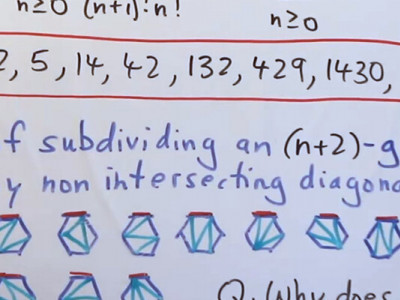 n≥0 (n+1)! n!
n≥0
2, 5, 14, 42, 132, 429, 1430,
f subdividing an (n+2)-g
y non intersecting diagona
Q. Why does